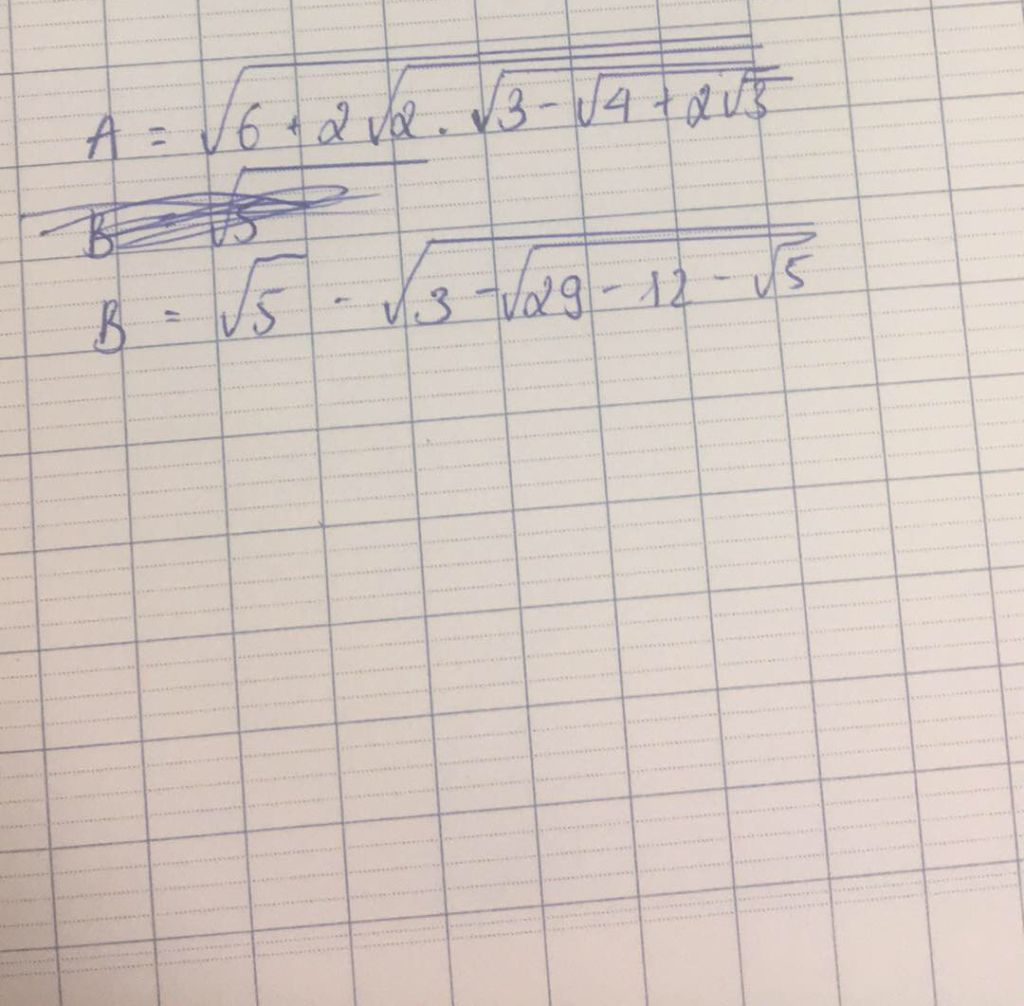 A = √6 + 2√2 . √3 - √4 + 2√3
B = √5
B = √5 - √3 - √29 - 12 - √5